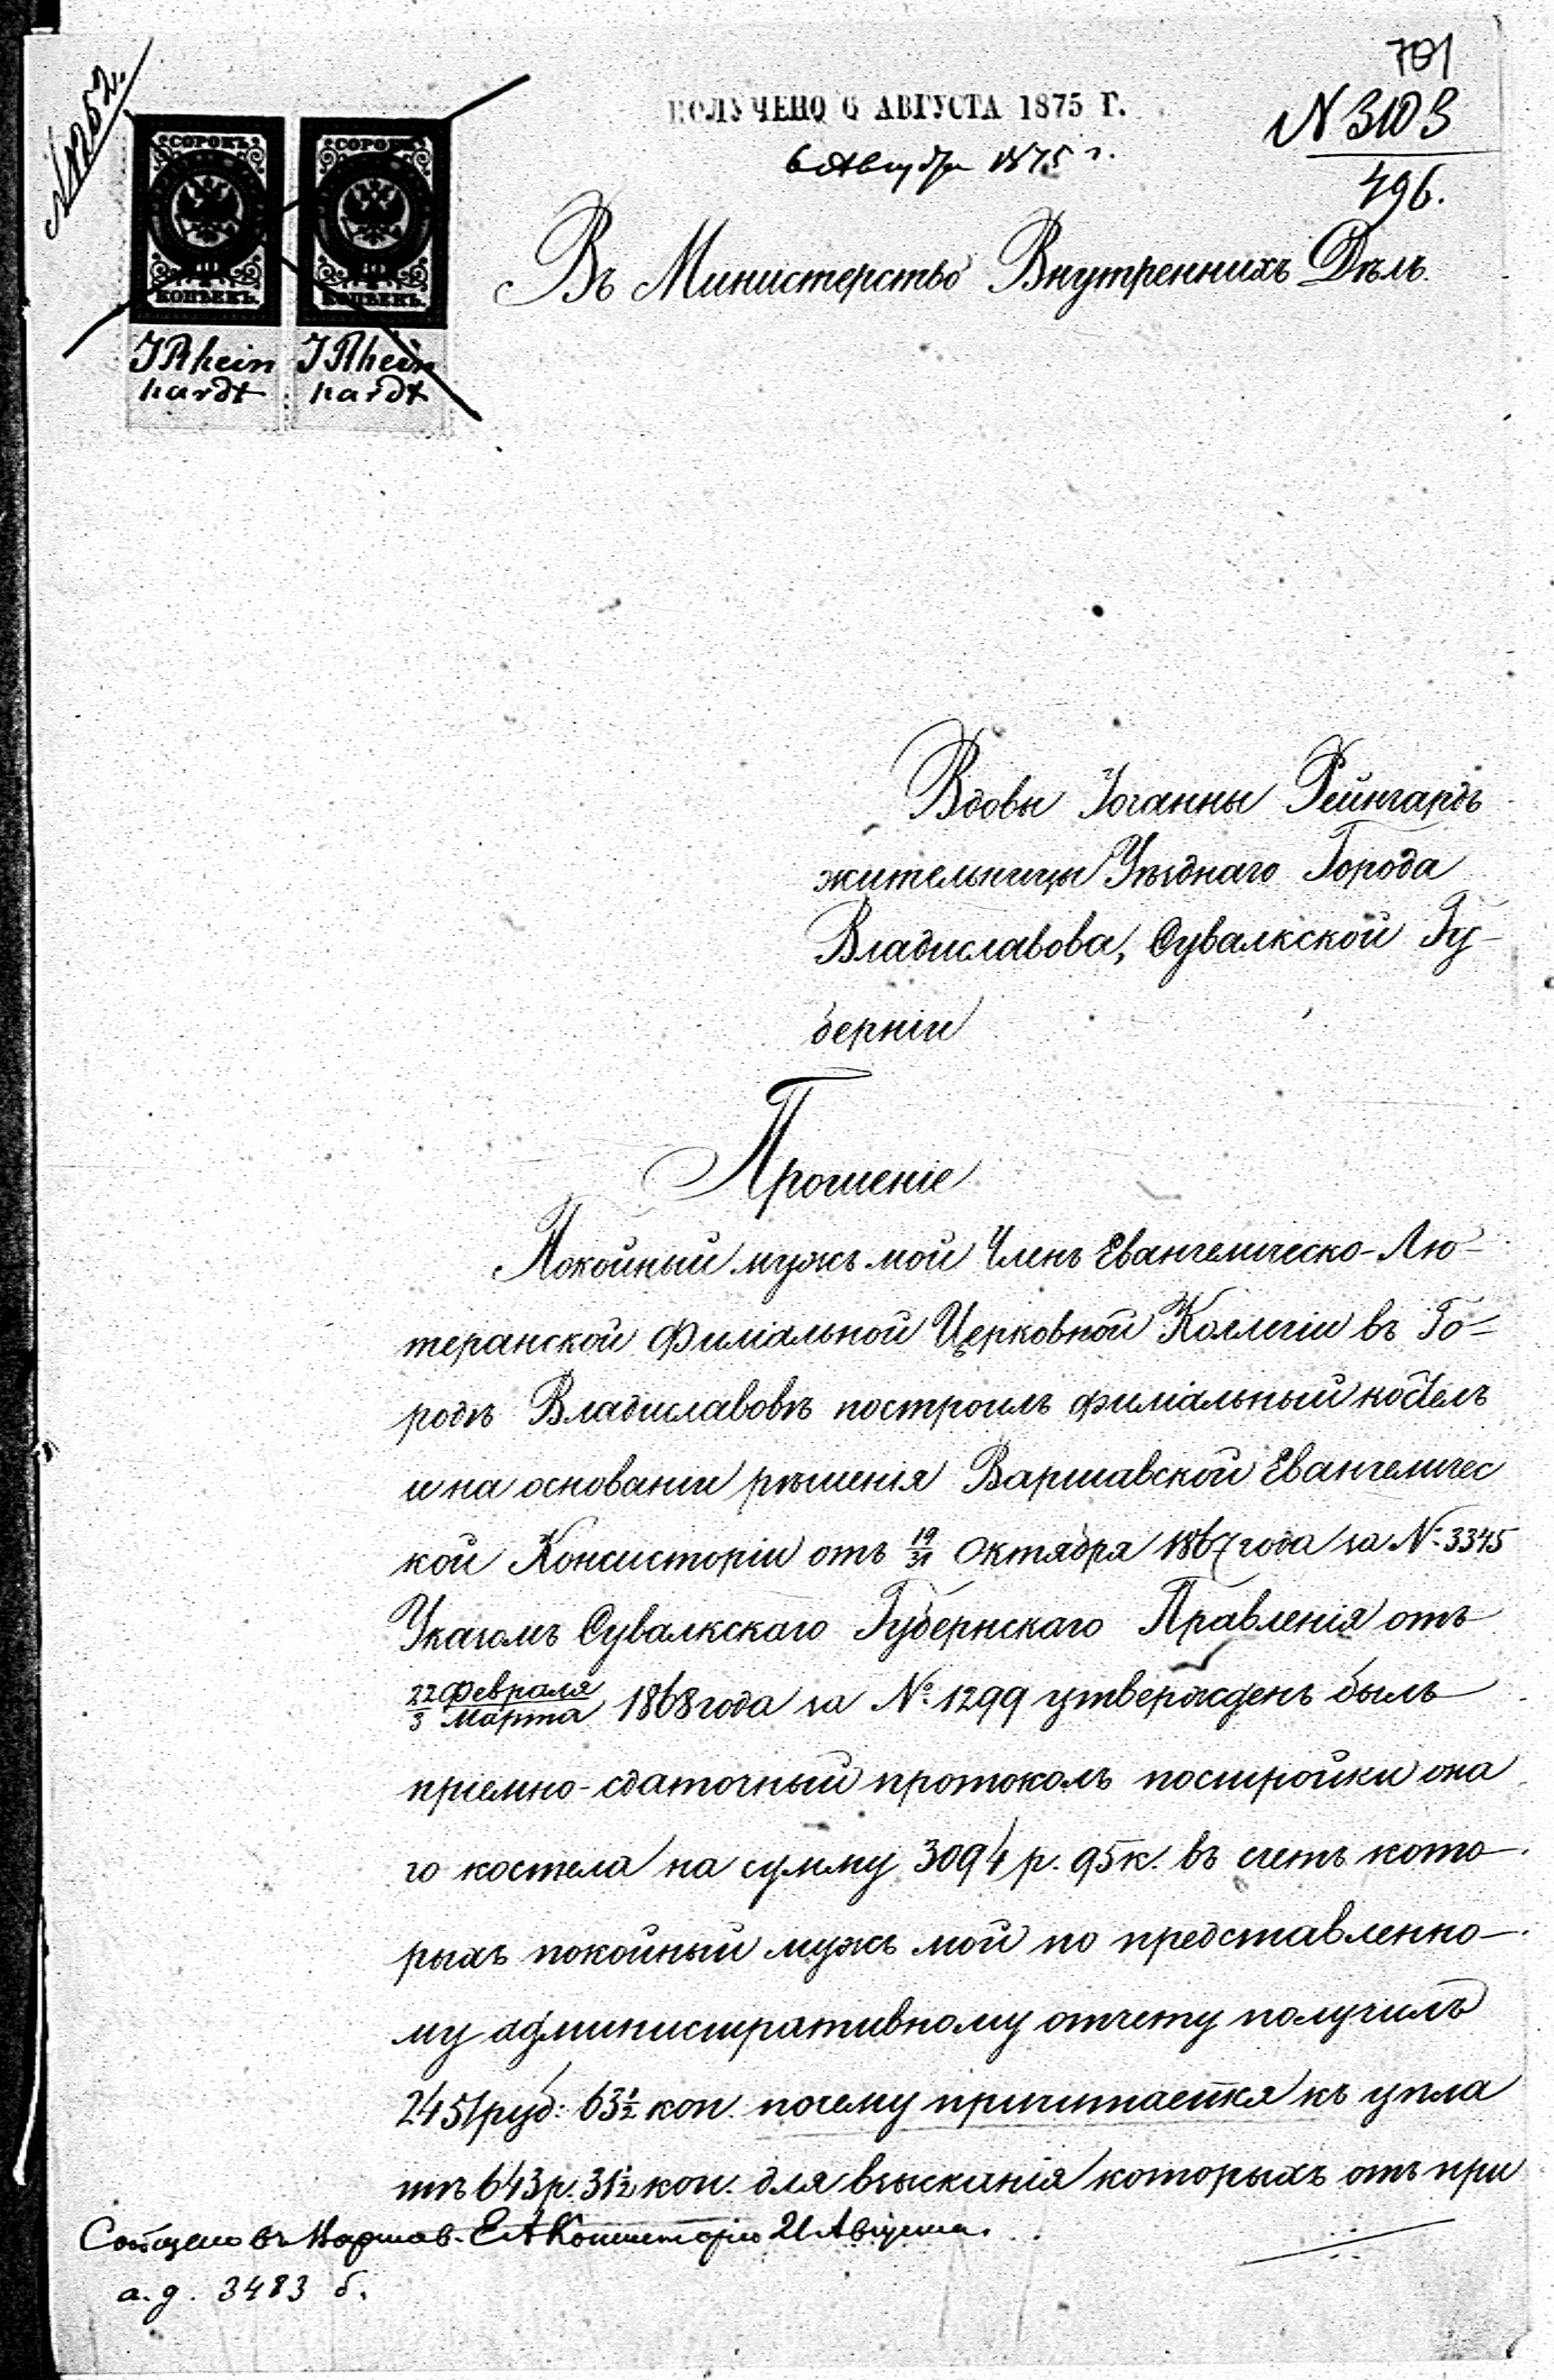 701
ПОЛУЧЕНО 6 АВГУСТА 1875 Г.
№ 3103
496.
6 Августа 1875 г.
СОРОКЪ СОРОКЪ
КОПѢЕКЪ. КОПѢЕКЪ.
JRhein JRhein
hardt hardt
Въ Министерство Внутреннихъ Дѣлъ.
Вдовы Іоганны Рейнгардъ
жительницы Уѣзднаго Города
Владиславова, Сувалкской Гу-
берніи
Прошеніе
Покойный мужъ мой Членъ Евангелическо-Лю-
теранской Филіальной Церковной Коллегіи въ Го-
родѣ Владиславовѣ построилъ филіальный костелъ
и на основаніи рѣшенія Варшавской Евангеличес
кой Консисторіи отъ 19/31 Октября 1867 года за №: 3345
Указомъ Сувалкскаго Губернскаго Правленія отъ
22 Февраля/3 Марта 1868 года за №: 1299 утвержденъ былъ
пріемно-сдаточный протоколъ постройки она
го костела на сумму 3094 р. 95 к. въ счетъ кото-
рыхъ покойный мужъ мой по представленно-
му административному отчету получилъ
2451 руб: 63½ коп. почему причитается къ упла
тѣ 643 р. 31½ коп. для взысканія которыхъ отъ при
Сообщено въ Варшав. ЕА Консисторію 21 Августа.
а. д. 3483 б.